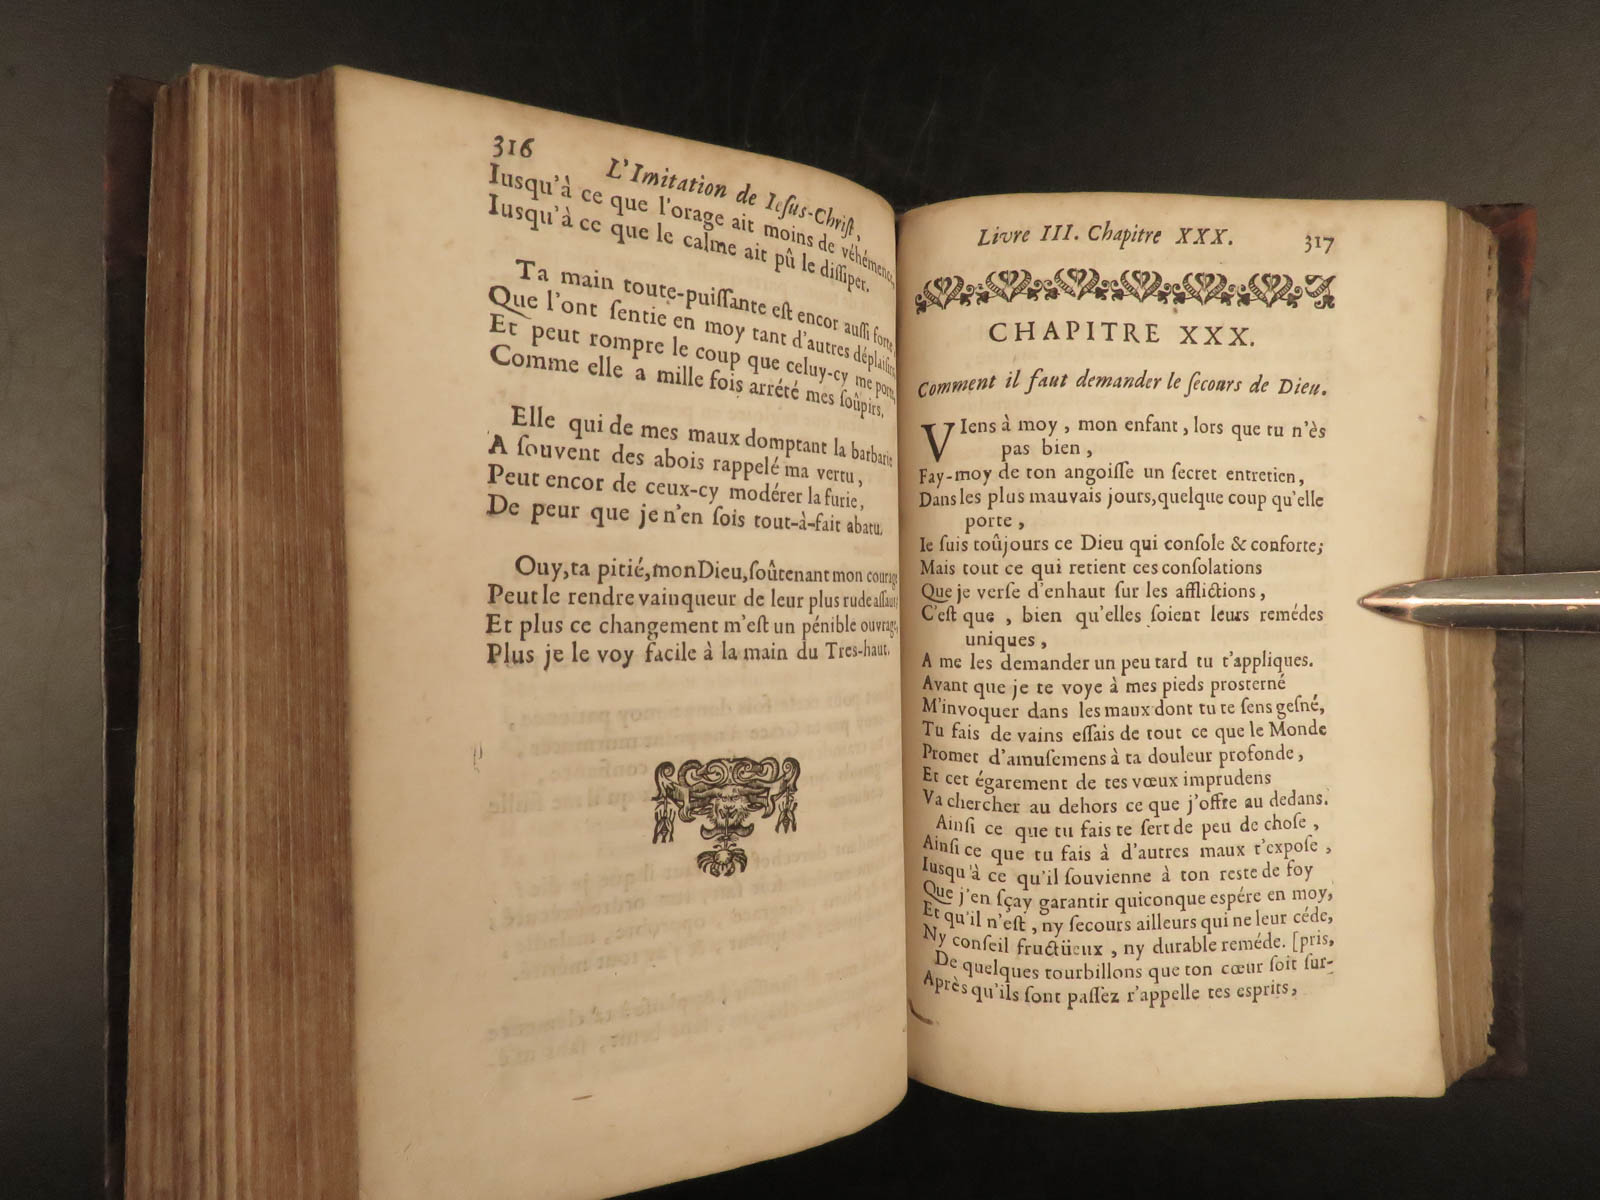 316
L'Imitation de Iesus-Chriſt,
Iusqu'à ce que l'orage ait moins de véhémence,
Iusqu'à ce que le calme ait pû le diſſiper.
Ta main toute-puiſſante eſt encor auſſi forte,
Que l'ont ſentie en moy tant d'autres déplaiſirs,
Et peut rompre le coup que celuy-cy me porte,
Comme elle a mille fois arrété mes ſoûpirs.
Elle qui de mes maux domptant la barbarie
A ſouvent des abois rappelé ma vertu,
Peut encor de ceux-cy modérer la furie,
De peur que je n'en ſois tout-à-fait abatu.
Ouy, ta pitié, mon Dieu, ſoûtenant mon courage
Peut le rendre vainqueur de leur plus rude aſſaut;
Et plus ce changement m'eſt un pénible ouvrage,
Plus je le voy facile à la main du Tres-haut.
Livre III. Chapitre XXX.
317
CHAPITRE XXX.
Comment il faut demander le ſecours de Dieu.
VIens à moy, mon enfant, lors que tu n'ès
pas bien,
Fay-moy de ton angoiſſe un ſecret entretien,
Dans les plus mauvais jours, quelque coup qu'elle
porte,
Ie ſuis toûjours ce Dieu qui conſole & conforte;
Mais tout ce qui retient ces conſolations
Que je verſe d'enhaut ſur les afflictions,
C'eſt que, bien qu'elles ſoient leurs remédes
uniques,
A me les demander un peu tard tu t'appliques.
Avant que je te voye à mes pieds prosterné
M'invoquer dans les maux dont tu te ſens geſné,
Tu fais de vains eſſais de tout ce que le Monde
Promet d'amuſemens à ta douleur profonde,
Et cet égarement de tes vœux imprudens
Va chercher au dehors ce que j'offre au dedans.
Ainſi ce que tu fais te ſert de peu de choſe,
Ainſi ce que tu fais à d'autres maux t'expoſe,
Iusqu'à ce qu'il ſouvienne à ton reste de foy
Que j'en ſçay garantir quiconque espére en moy,
Et qu'il n'eſt, ny ſecours ailleurs qui ne leur céde,
Ny conſeil fructüeux, ny durable reméde. [pris,
De quelques tourbillons que ton cœur ſoit ſur-
Après qu'ils ſont paſſez r'appelle tes esprits,